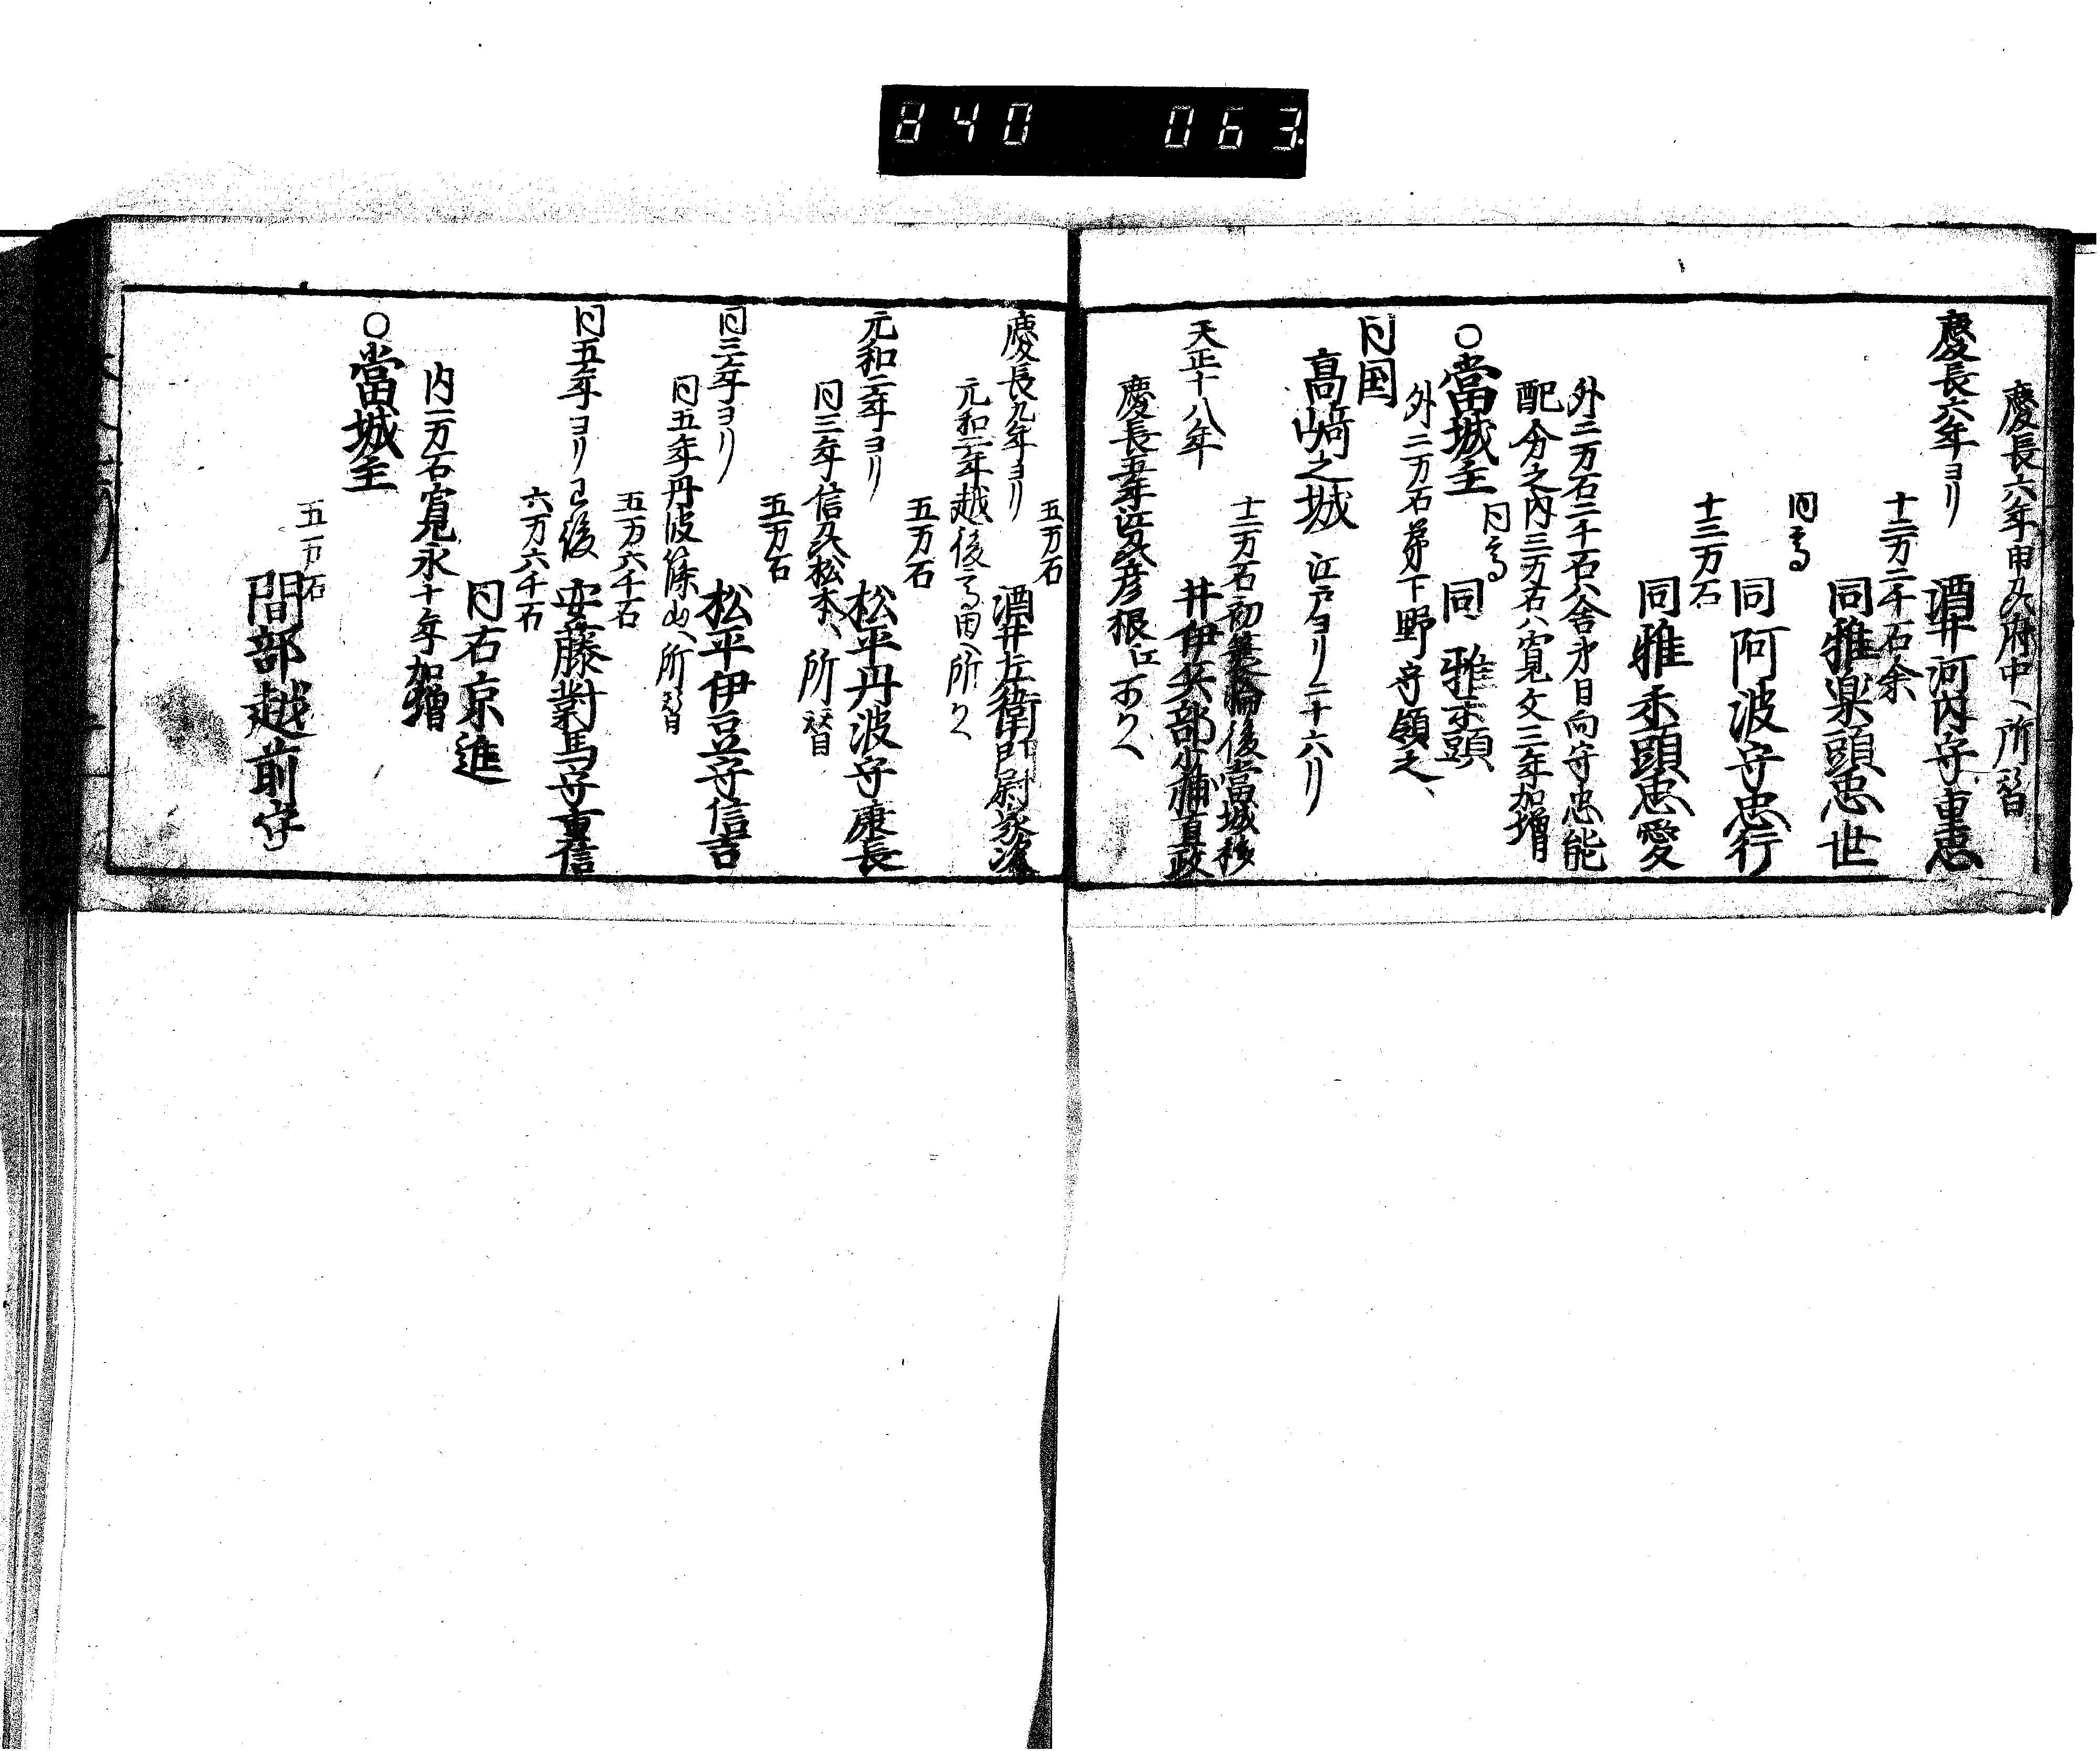 840 063
慶長六年甲州府中、所替
慶長六年ヨリ 酒井河内守重忠
十二万二千石余
同雅楽頭忠世
同高
同阿波守忠行
十三万石
同雅楽頭忠愛
外二万石二千石ハ舎弟日向守忠能
配分之内三万石ハ寛文三年加増
○當城主 同高 同雅楽頭
外二万石弟下野守領之
同国
高﨑之城 江戸ヨリ二十六リ
十二万石初箕輪後當城移
天正十八年 井伊兵部少輔直政
慶長五年江州彦根江
五万石
慶長九年ヨリ 酒井左衛門尉家次
元和二年越後高田所
五万石
元和二年ヨリ 松平丹波守康長
同三年信州松本、所替
五万石
同三年ヨリ 松平伊豆守信吉
同五年丹波篠山、所替
五万六千石
同五年ヨリ已後 安藤對馬守重信
六万六千石
同右京進
内一万石寛永十年加増
○當城主
五万石
間部越前守